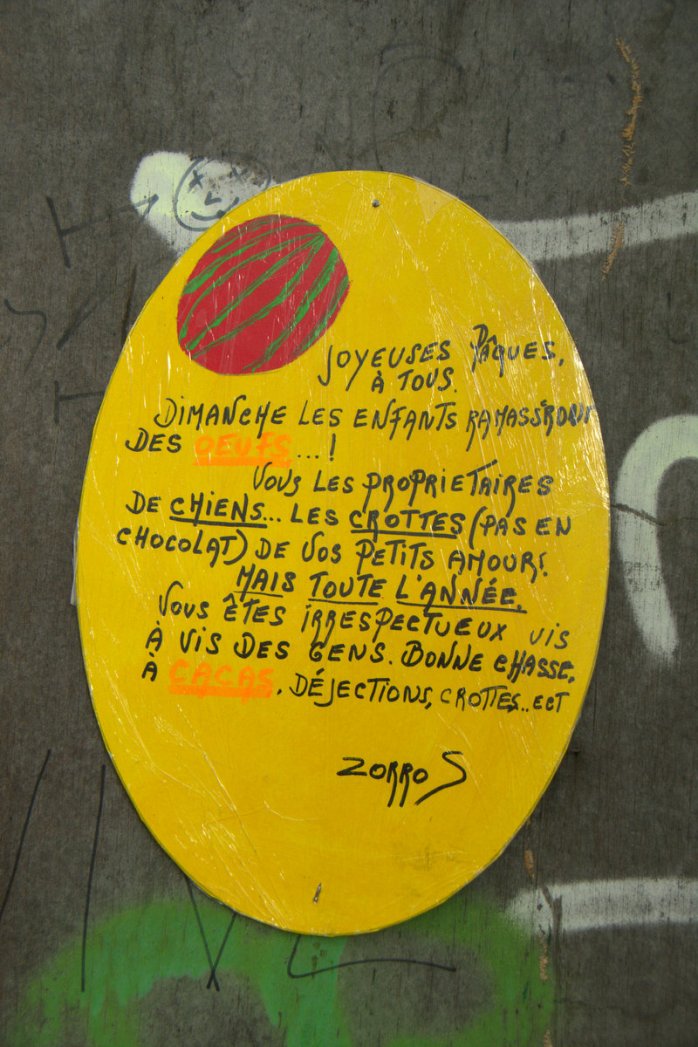 JOYEUSES PÂQUES,
À TOUS.
DIMANCHE LES ENFANTS RAMASS'RONT
DES OEUFS...!
VOUS LES PROPRIETAIRES
DE CHIENS... LES CROTTES (PAS EN
CHOCOLAT) DE VOS PETITS AMOUR!
MAIS TOUTE L'ANNÉE.
VOUS ÊTES IRRESPECTUEUX VIS
À VIS DES GENS. BONNE CHASSE.
À CACAS, DÉJECTIONS, CROTTES.. ECT
ZORRO S